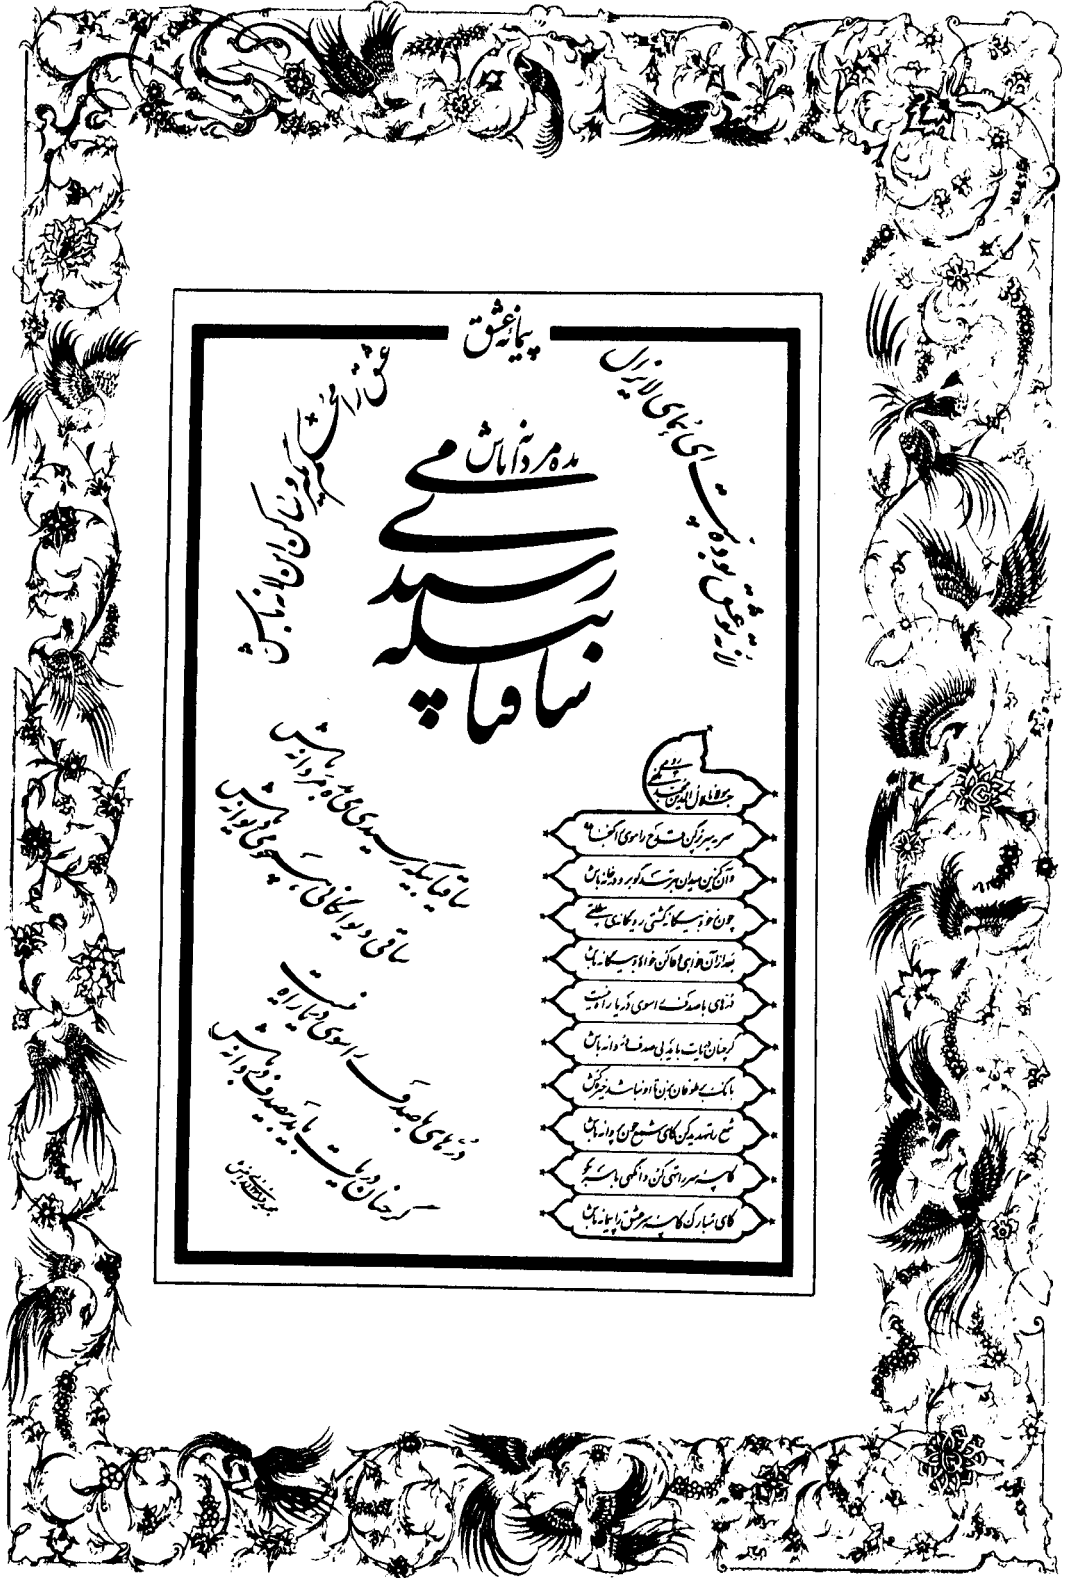 پیمانه عشق
ای همای لایزال
لانه تو عشق بوده‌ست
عشق را
و ساکن این لانه باش
ساقیا چه
بیگه
رسیدی
می
مده مردانه باش
ساقیا بیگه رسیدی می بده مردانه باش
ساقی دیوانگانی همچو می دیوانه باش
درهای باصدف را سوی دریا راه نیست
گر چنان دریات باید بی‌صدف دردانه باش
مولانا جلال الدین محمد بلخی
سر به سر پر کن قدح را موی را گنجا مده
وان کزین میدان بترسد گو برو در خانه باش
چون ز خود بیگانه گشتی رو یگانه مطلقی
بعد از آن خواهی وفا کن خواه رو بیگانه باش
درهای باصدف را سوی دریا راه نیست
گر چنان دریات باید بی صدف دردانه باش
بانگ بر طوفان بزن تا او نباشد خیره‌کش
شمع را تهدید کن کای شمع چون پروانه باش
کاسه سر را تهی کن وانگهی با سر بگو
کای مبارک کاسه سر عشق را پیمانه باش